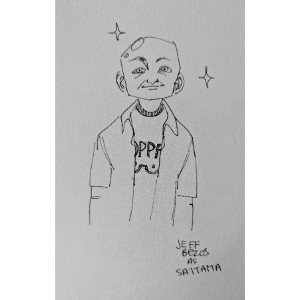 OPPA
JEFF
BEZOS
AS
SAITAMA